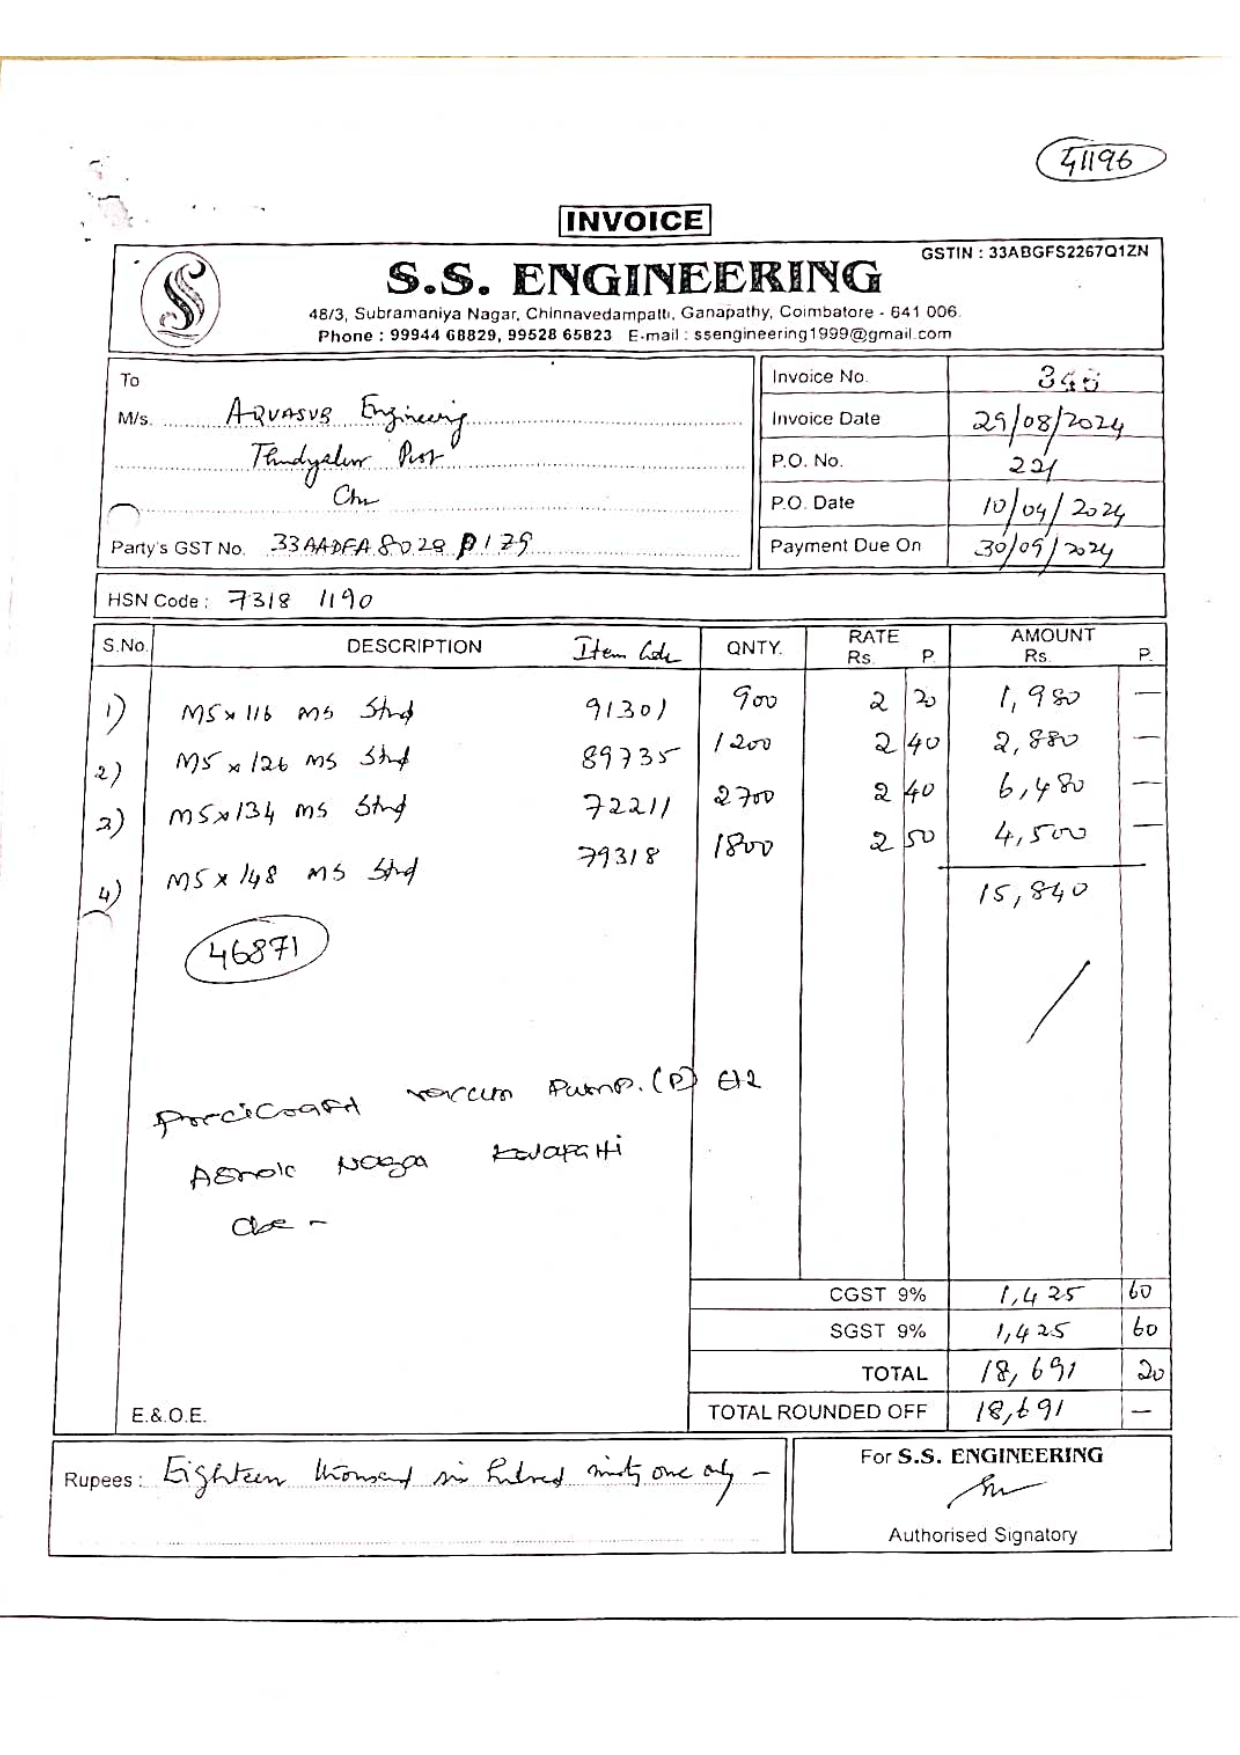 41196
INVOICE
GSTIN : 33ABGFS2267Q1ZN
S.S. ENGINEERING
48/3, Subramaniya Nagar, Chinnavedampatti, Ganapathy, Coimbatore - 641 006.
Phone : 99944 68829, 99528 65823 E-mail : ssengineering1999@gmail.com
To
M/s. AQUASUB Engineering
Thudiyalur Post
Party's GST No. 33AADFA8028
Invoice No.
Invoice Date 29/08/2024
P.O. No. 221
P.O. Date 10/04/2024
Payment Due On 30/09/2024
HSN Code : 7318 1190
S.No. DESCRIPTION Item Code QNTY. RATE Rs. P. AMOUNT Rs. P.
1) M5 x 116 MS Stud 91301 900 2 20 1,980 —
2) M5 x 126 MS Stud 89735 1200 2 40 2,880 —
3) M5 x 134 MS Stud 72211 2700 2 40 6,480 —
4) M5 x 148 MS Stud 79318 1800 2 50 4,500 —
15,840
46871
Pump. (P)
Ashok
CGST 9% 1,425 60
SGST 9% 1,425 60
TOTAL 18,691 20
TOTAL ROUNDED OFF 18,691 —
E.&.O.E.
Rupees : Eighteen thousand six hundred ninty one only –
For S.S. ENGINEERING
Authorised Signatory